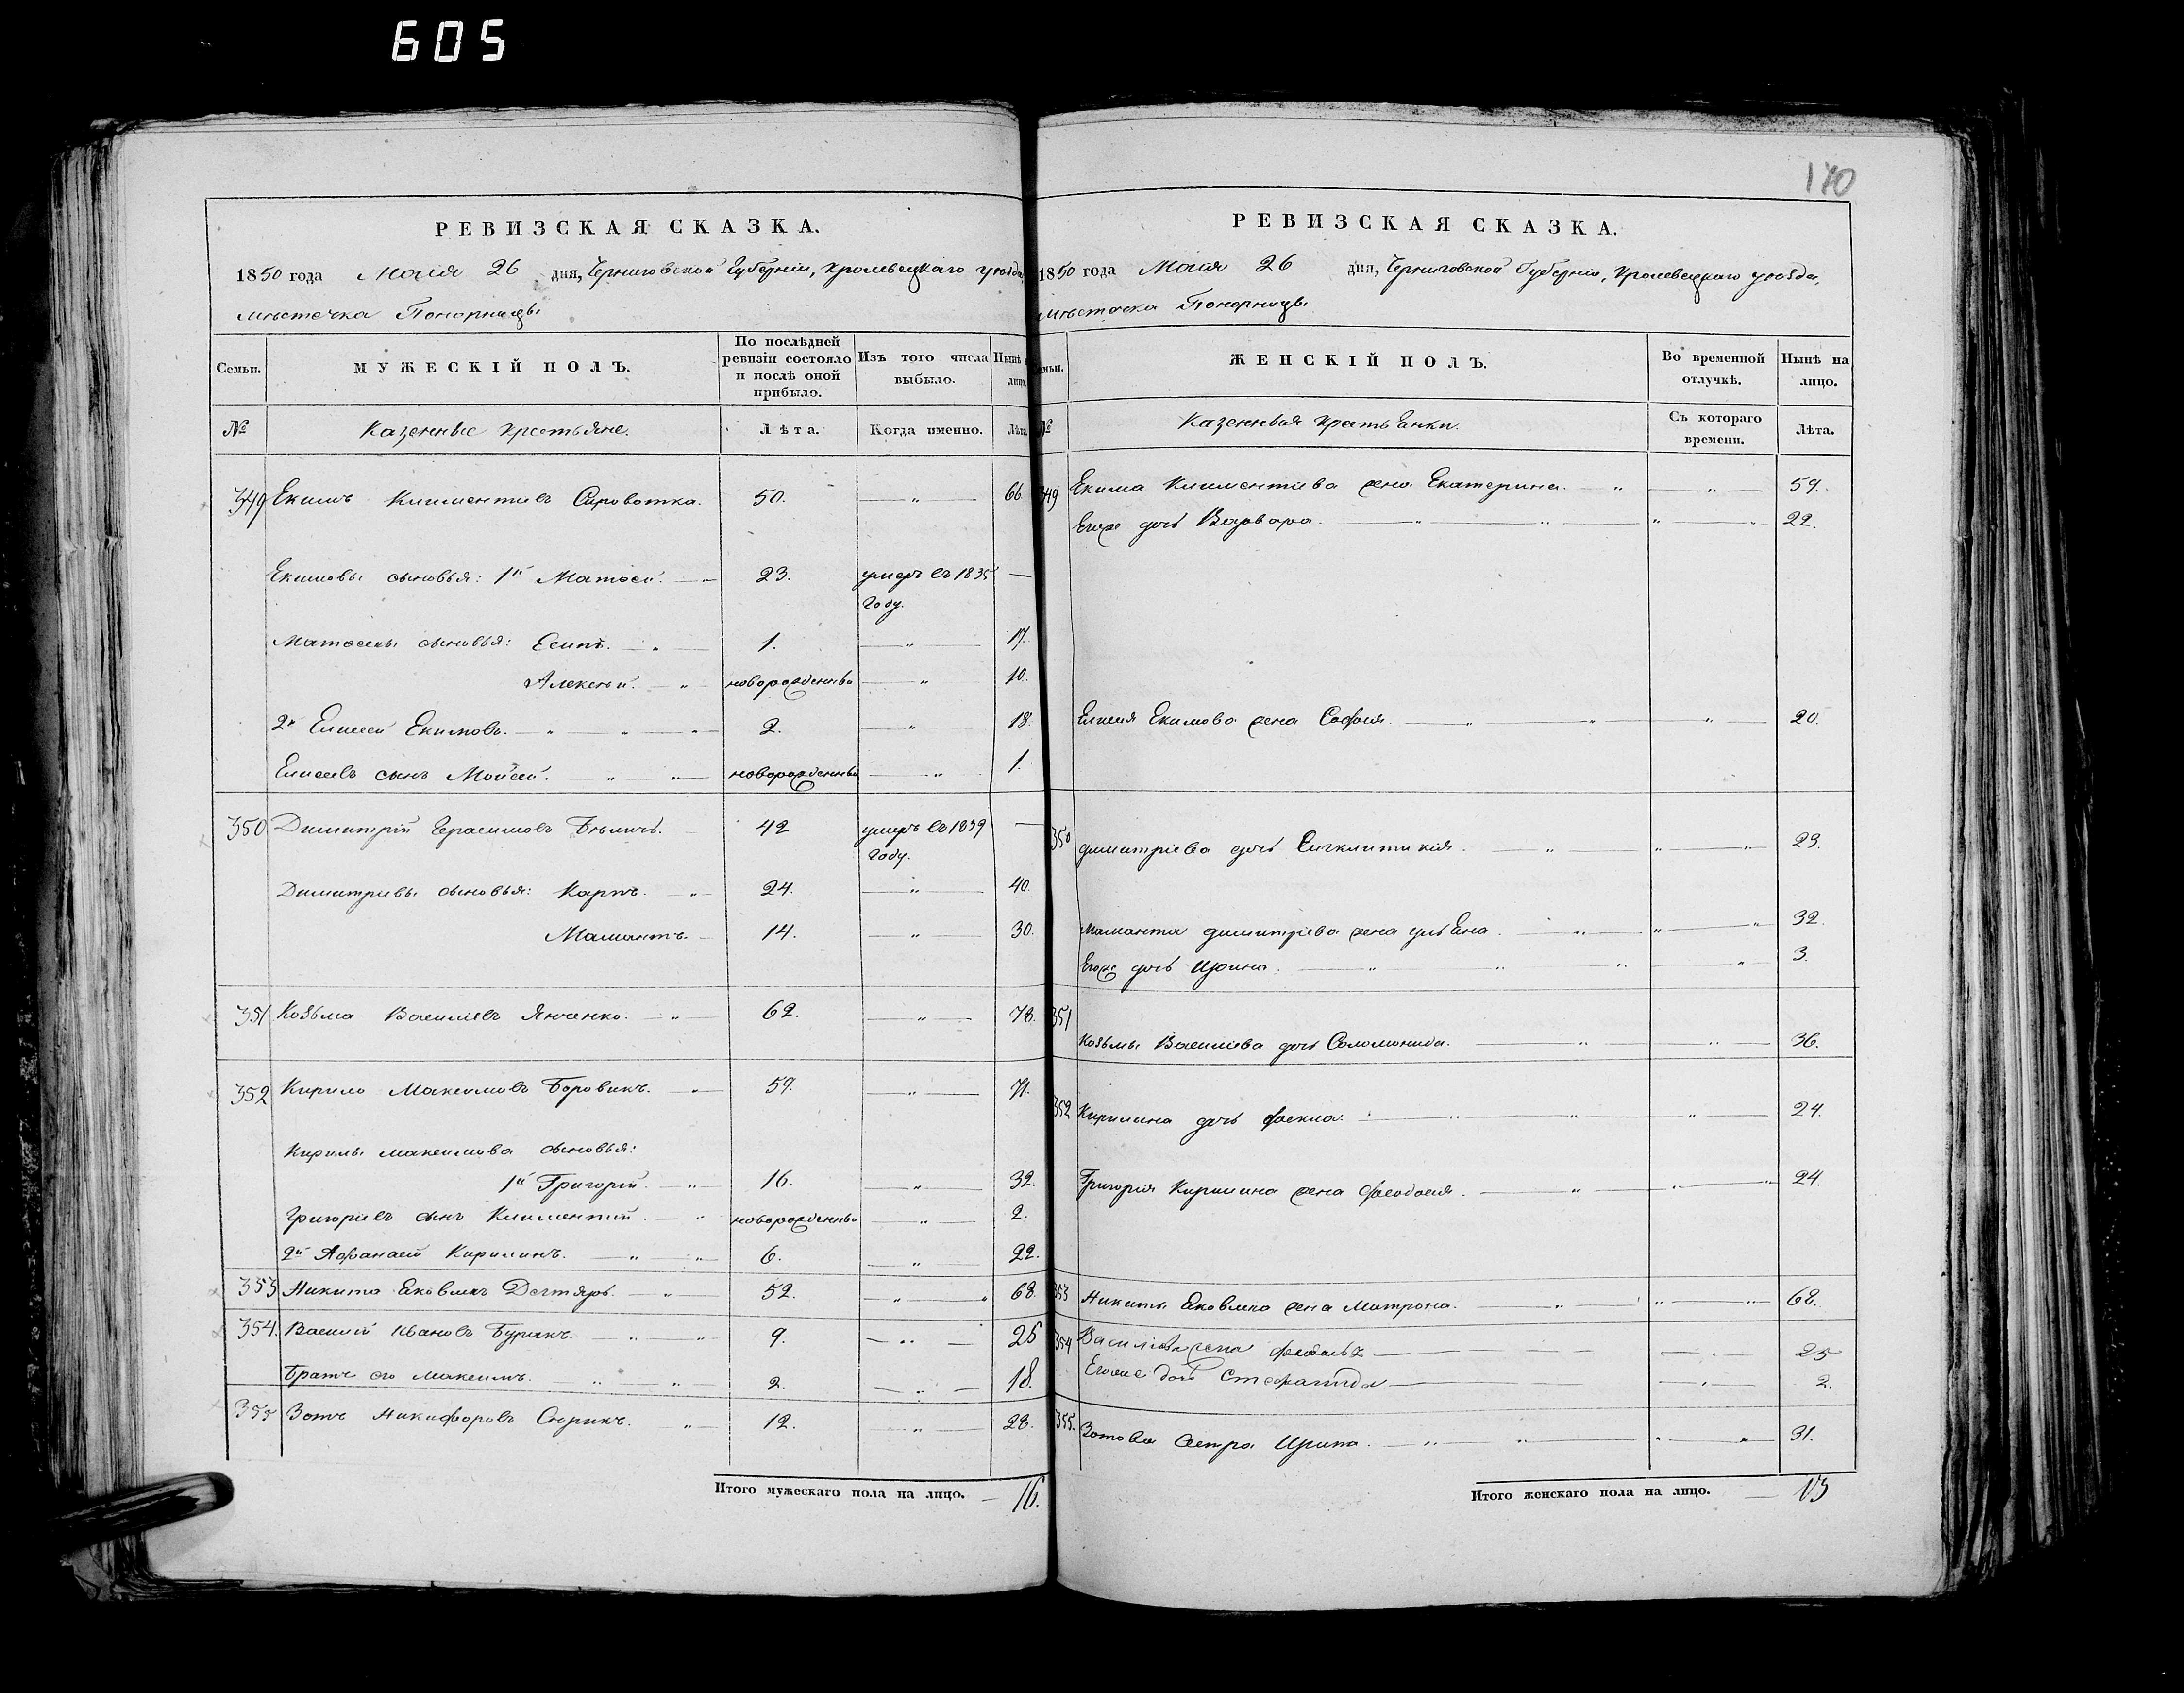 605
170
РЕВИЗСКАЯ СКАЗКА.
1850 года Маія 26 дня, Черниговской Губерніи, Кролевецкаго уѣзда,
мѣстечка Понорницы
Семьи.
МУЖЕСКІЙ ПОЛЪ.
По послѣдней ревизіи состояло и послѣ оной прибыло.
Изъ того числа выбыло.
Нынѣ лицо.
№ Казенные крестьяне. Лѣта. Когда именно. Лѣта
349 Екимъ Климентіевъ Сыроватка. 50. — " — 66
Екимовы сыновья: 1й Матвей. — 23. умеръ въ 1835 —
году.
Матвеевы сыновья: Есипъ. — " — 1. — " — 17.
Алексѣй. — " — новорожденный — " — 10.
2й Елисей Екимовъ. — " — " — " — 2. — " — 18.
Елисеевъ сынъ Мойсей. — " — " — новорожденный — " — 1.
350 Димитрій Герасимовъ Бѣличъ. — 42 умеръ въ 1839 —
году.
Димитріевы сыновья: Карпъ. — " — 24. — " — 40.
Мамантъ. — 14. — " — 30.
351 Козьма Василіевъ Янченко. — " — 62. — " — 78.
352 Кирило Максимовъ Боровикъ. — " — 57. — " — 71.
Кирилы Максимова сыновья:
1й Григорій. — " — 16. — " — 32.
Григоріевъ сынъ Климентій. — " новорожденный — " — 2.
2й Афанасій Кирилинъ. — " — " 6. — " — 22.
353 Никита Яковлевъ Дегтярь. — " — 52. — " — " 68.
354. Василій Ивановъ Бурикъ. — " — " 9. — " — 26
Братъ его Максимъ. " " 2. — " — 18.
355 Зотъ Никифоровъ Сюрикъ. " — 12. — " — 28.
Итого мужескаго пола на лицо. — 16.
РЕВИЗСКАЯ СКАЗКА.
1850 года Маія 26 дня, Черниговской Губерніи, Кролевецкаго уѣзда,
мѣстечка Понорницы
ЖЕНСКІЙ ПОЛЪ.
Во временной отлучкѣ.
Нынѣ на лицо.
№ Казенныя крестьянки. Съ котораго времени. Лѣта.
349 Екима Климентіева жена Екатерина. — " — " — 57.
Егоже дочь Варвара. — " — " — " — " 22.
Елисея Екимова жена Софія. — " — " — " — 20.
350 Димитріева дочь Синклитикія. — " — " — " 23.
Маманта Димитріева жена Ульяна. — " — " — " 32.
Егоже дочь Ирина. — " — " — " — " — 3.
351
Козьмы Василіева дочь Соломонида. — " — " — 36.
352 Кирилина дочь Фекла. — " — " — " — 24.
Григорія Кирилина жена Феодосія. — " — " — " 24.
353 Никиты Яковлева жена Матрона. — " — " — " 68.
354 Василіева жена — — — . — 25
Егоже дочь Стефанида — — " — 2.
355. Зотова сестра Ирина. — " — " — " — " 31.
Итого женскаго пола на лицо. — 13